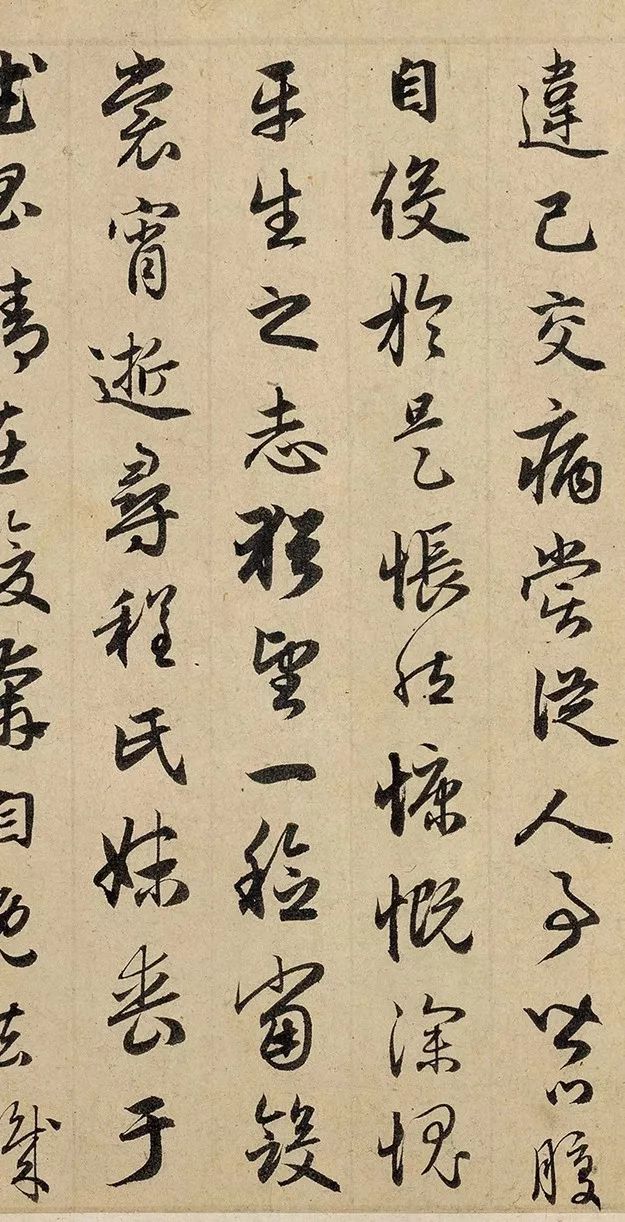 違己交病嘗從人事皆口腹
自役於是悵然慷慨深愧
平生之志猶望一稔當斂
裳宵逝尋程氏妹喪于
武昌情在駿奔自免去職